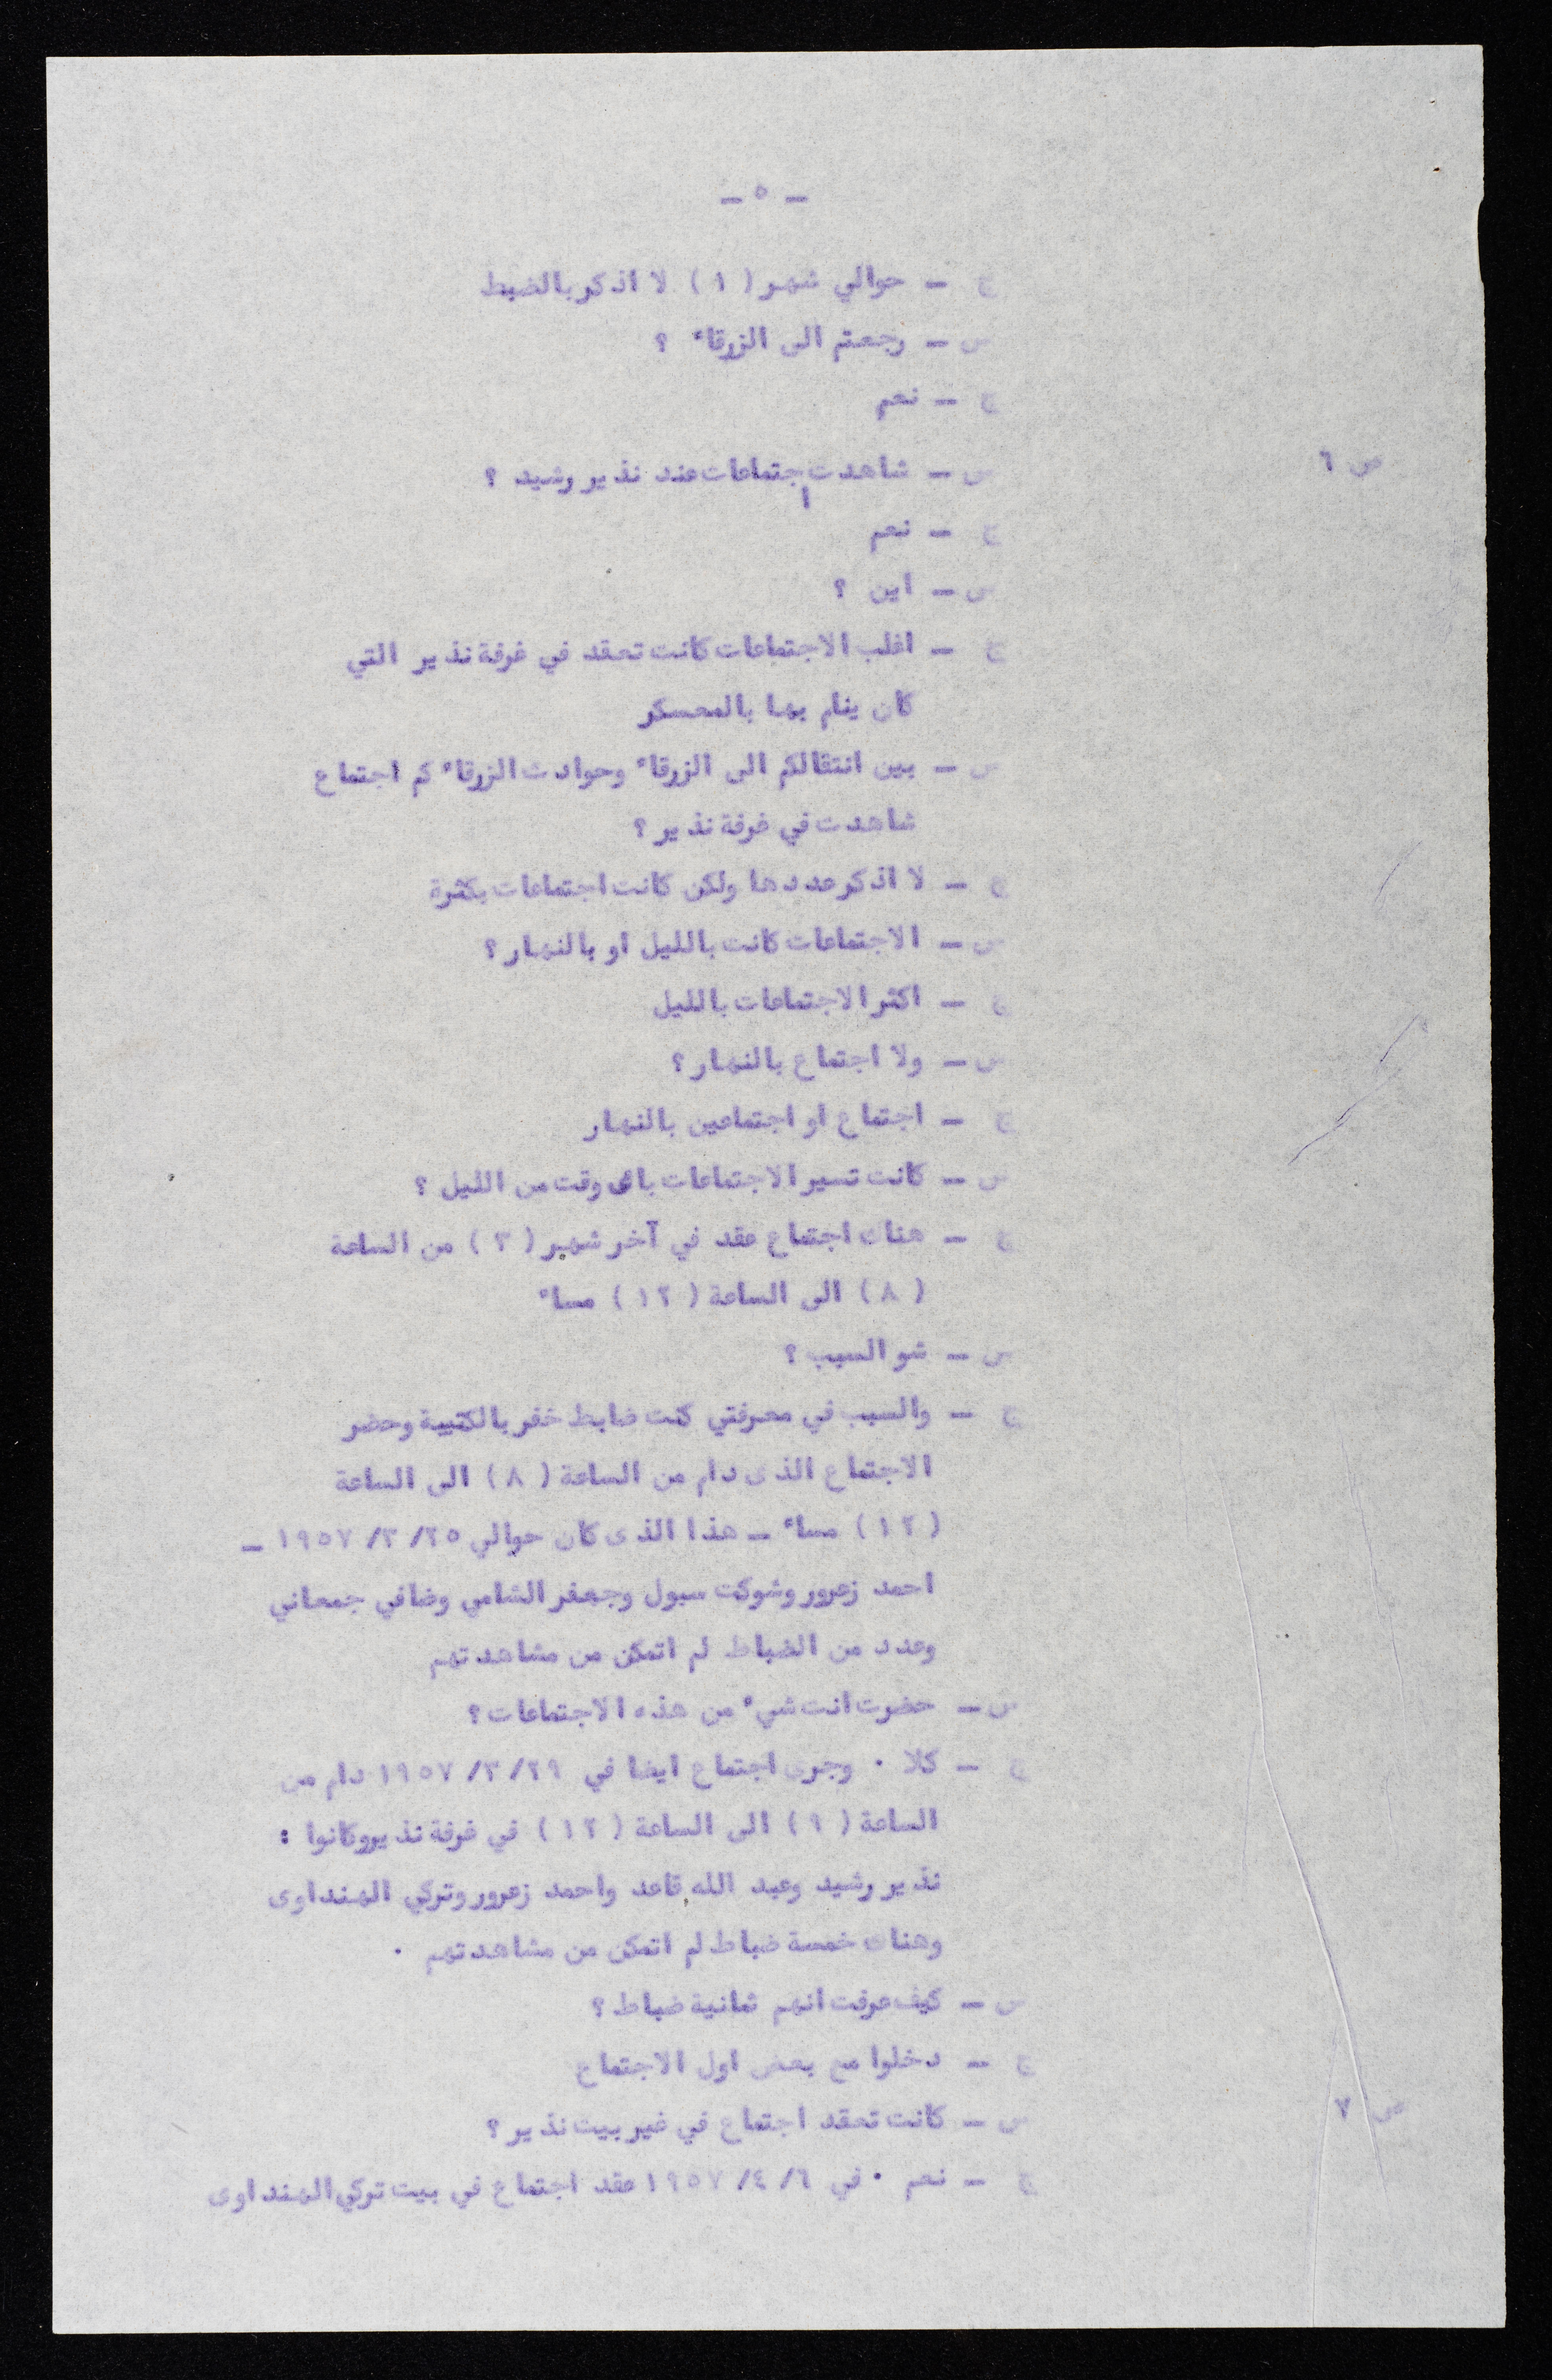 - ٥ -
ج - حوالي شهر (١) لا اذكر بالضبط
س - رجعتم الى الزرقاء ؟
ج - نعم
ص ٦
س - شاهدت اجتماعات عند نذير رشيد ؟
ج - نعم
س - اين ؟
ج - اغلب الاجتماعات كانت تعقد في غرفة نذير التي
كان ينام بها بالمعسكر
س - بين انتقالكم الى الزرقاء وحوادث الزرقاء كم اجتماع
شاهدت في غرفة نذير ؟
ج - لا اذكر عددها ولكن كانت اجتماعات بكثرة
س - الاجتماعات كانت بالليل او بالنهار ؟
ج - اكثر الاجتماعات بالليل
س - ولا اجتماع بالنهار ؟
ج - اجتماع او اجتماعين بالنهار
س - كانت تسير الاجتماعات باى وقت من الليل ؟
ج - هناك اجتماع عقد في آخر شهر (٣) من الساعة
(٨) الى الساعة (١٢) مساء
س - شو السبب ؟
ج - والسبب في معرفتي كنت ضابط خفر بالكتيبة وحضر
الاجتماع الذى دام من الساعة (٨) الى الساعة
(١٢) مساء - هذا الذى كان حوالي ٢٥/ ٣/ ١٩٥٧ -
احمد زعرور وشوكت سبول وجعفر الشامي وضافي جمعاني
وعدد من الضباط لم اتمكن من مشاهدتهم
س - حضرت انت شيء من هذه الاجتماعات ؟
ج - كلا . وجرى اجتماع ايضا في ٢٩/ ٣/ ١٩٥٧ دام من
الساعة (٩) الى الساعة (١٢) في غرفة نذير وكانوا :
نذير رشيد وعبد الله قاعد واحمد زعرور وتركي الهنداوى
وهناك خمسة ضباط لم اتمكن من مشاهدتهم .
س - كيف عرفت انهم ثمانية ضباط ؟
ج - دخلوا مع بعض اول الاجتماع
ص ٧
س - كانت تعقد اجتماع في غير بيت نذير ؟
ج - نعم . في ٦/ ٤/ ١٩٥٧ عقد اجتماع في بيت تركي الهنداوى